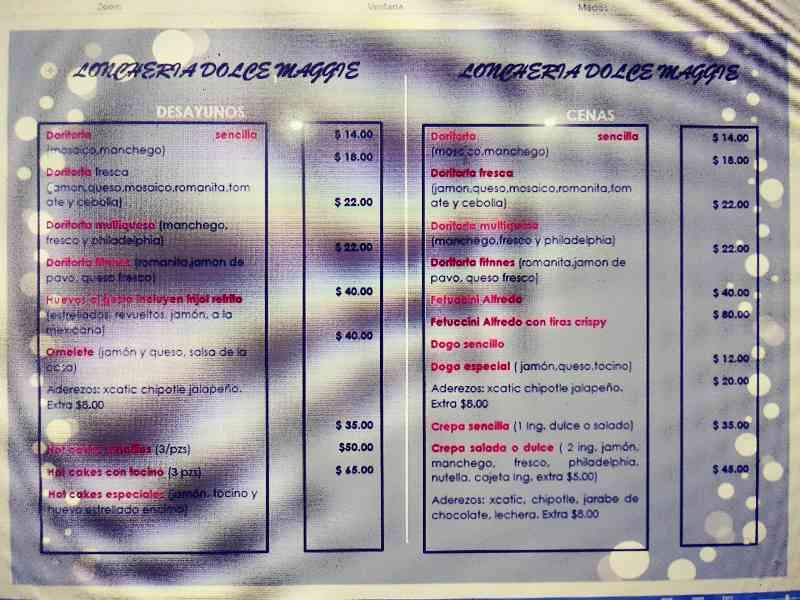 Zoom
Ventana
Macros
LONCHERIA DOLCE MAGGIE
DESAYUNOS
Doritorta sencilla $ 14.00
(mosaico,manchego)
$ 18.00
Doritorta fresca
(jamon,queso,mosaico,romanita,tom
ate y cebolla) $ 22.00
Doritorta multiqueso (manchego,
fresco y philadelphia) $ 22.00
Doritorta fitnnes (romanita,jamon de
pavo, queso fresco)
Huevos al gusto incluyen frijol refrito $ 40.00
(estrellados, revueltos, jamón, a la
mexicana)
$ 40.00
Omelete (jamón y queso, salsa de la
casa)
Aderezos: xcatic chipotle jalapeño.
Extra $8.00
$ 35.00
Hot cakes sencillos (3/pzs) $50.00
Hot cakes con tocino (3 pzs) $ 65.00
Hot cakes especiales (jamón, tocino y
huevo estrellado encima)
LONCHERIA DOLCE MAGGIE
CENAS
Doritorta sencilla $ 14.00
(mosaico,manchego)
$ 18.00
Doritorta fresca
(jamon,queso,mosaico,romanita,tom
ate y cebolla) $ 22.00
Doritorta multiqueso
(manchego,fresco y philadelphia) $ 22.00
Doritorta fitnnes (romanita,jamon de
pavo, queso fresco)
Fetuccini Alfredo $ 40.00
Fetuccini Alfredo con tiras crispy $ 80.00
Dogo sencillo
$ 12.00
Dogo especial ( jamón,queso,tocino)
$ 20.00
Aderezos: xcatic chipotle jalapeño.
Extra $8.00
Crepa sencilla (1 ing. dulce o salado) $ 35.00
Crepa salada o dulce ( 2 ing. jamón,
manchego, fresco, philadelphia,
nutella, cajeta ing. extra $5.00) $ 45.00
Aderezos: xcatic, chipotle, jarabe de
chocolate, lechera. Extra $8.00